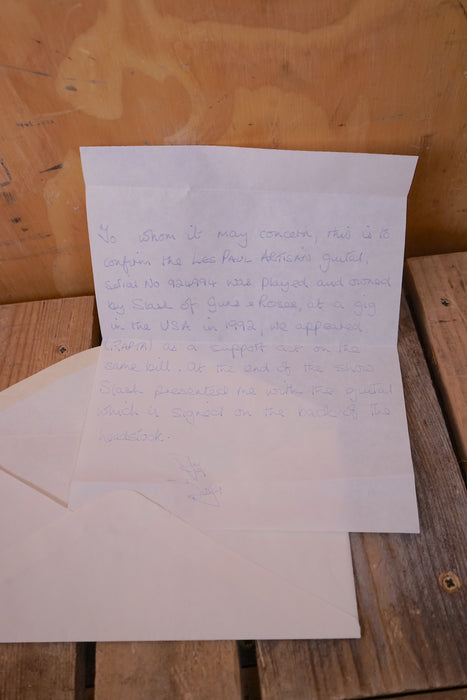 To whom it may concern, this is to
confirm the LES PAUL ARTISAN guitar,
serial No was played and owned
by Slash of Guns + Roses, at a gig
in the USA in 1992, We appeared
as a support act on the
same bill. At the end of the show
Slash presented me with the guitar
which is signed on the back of the
headstock.